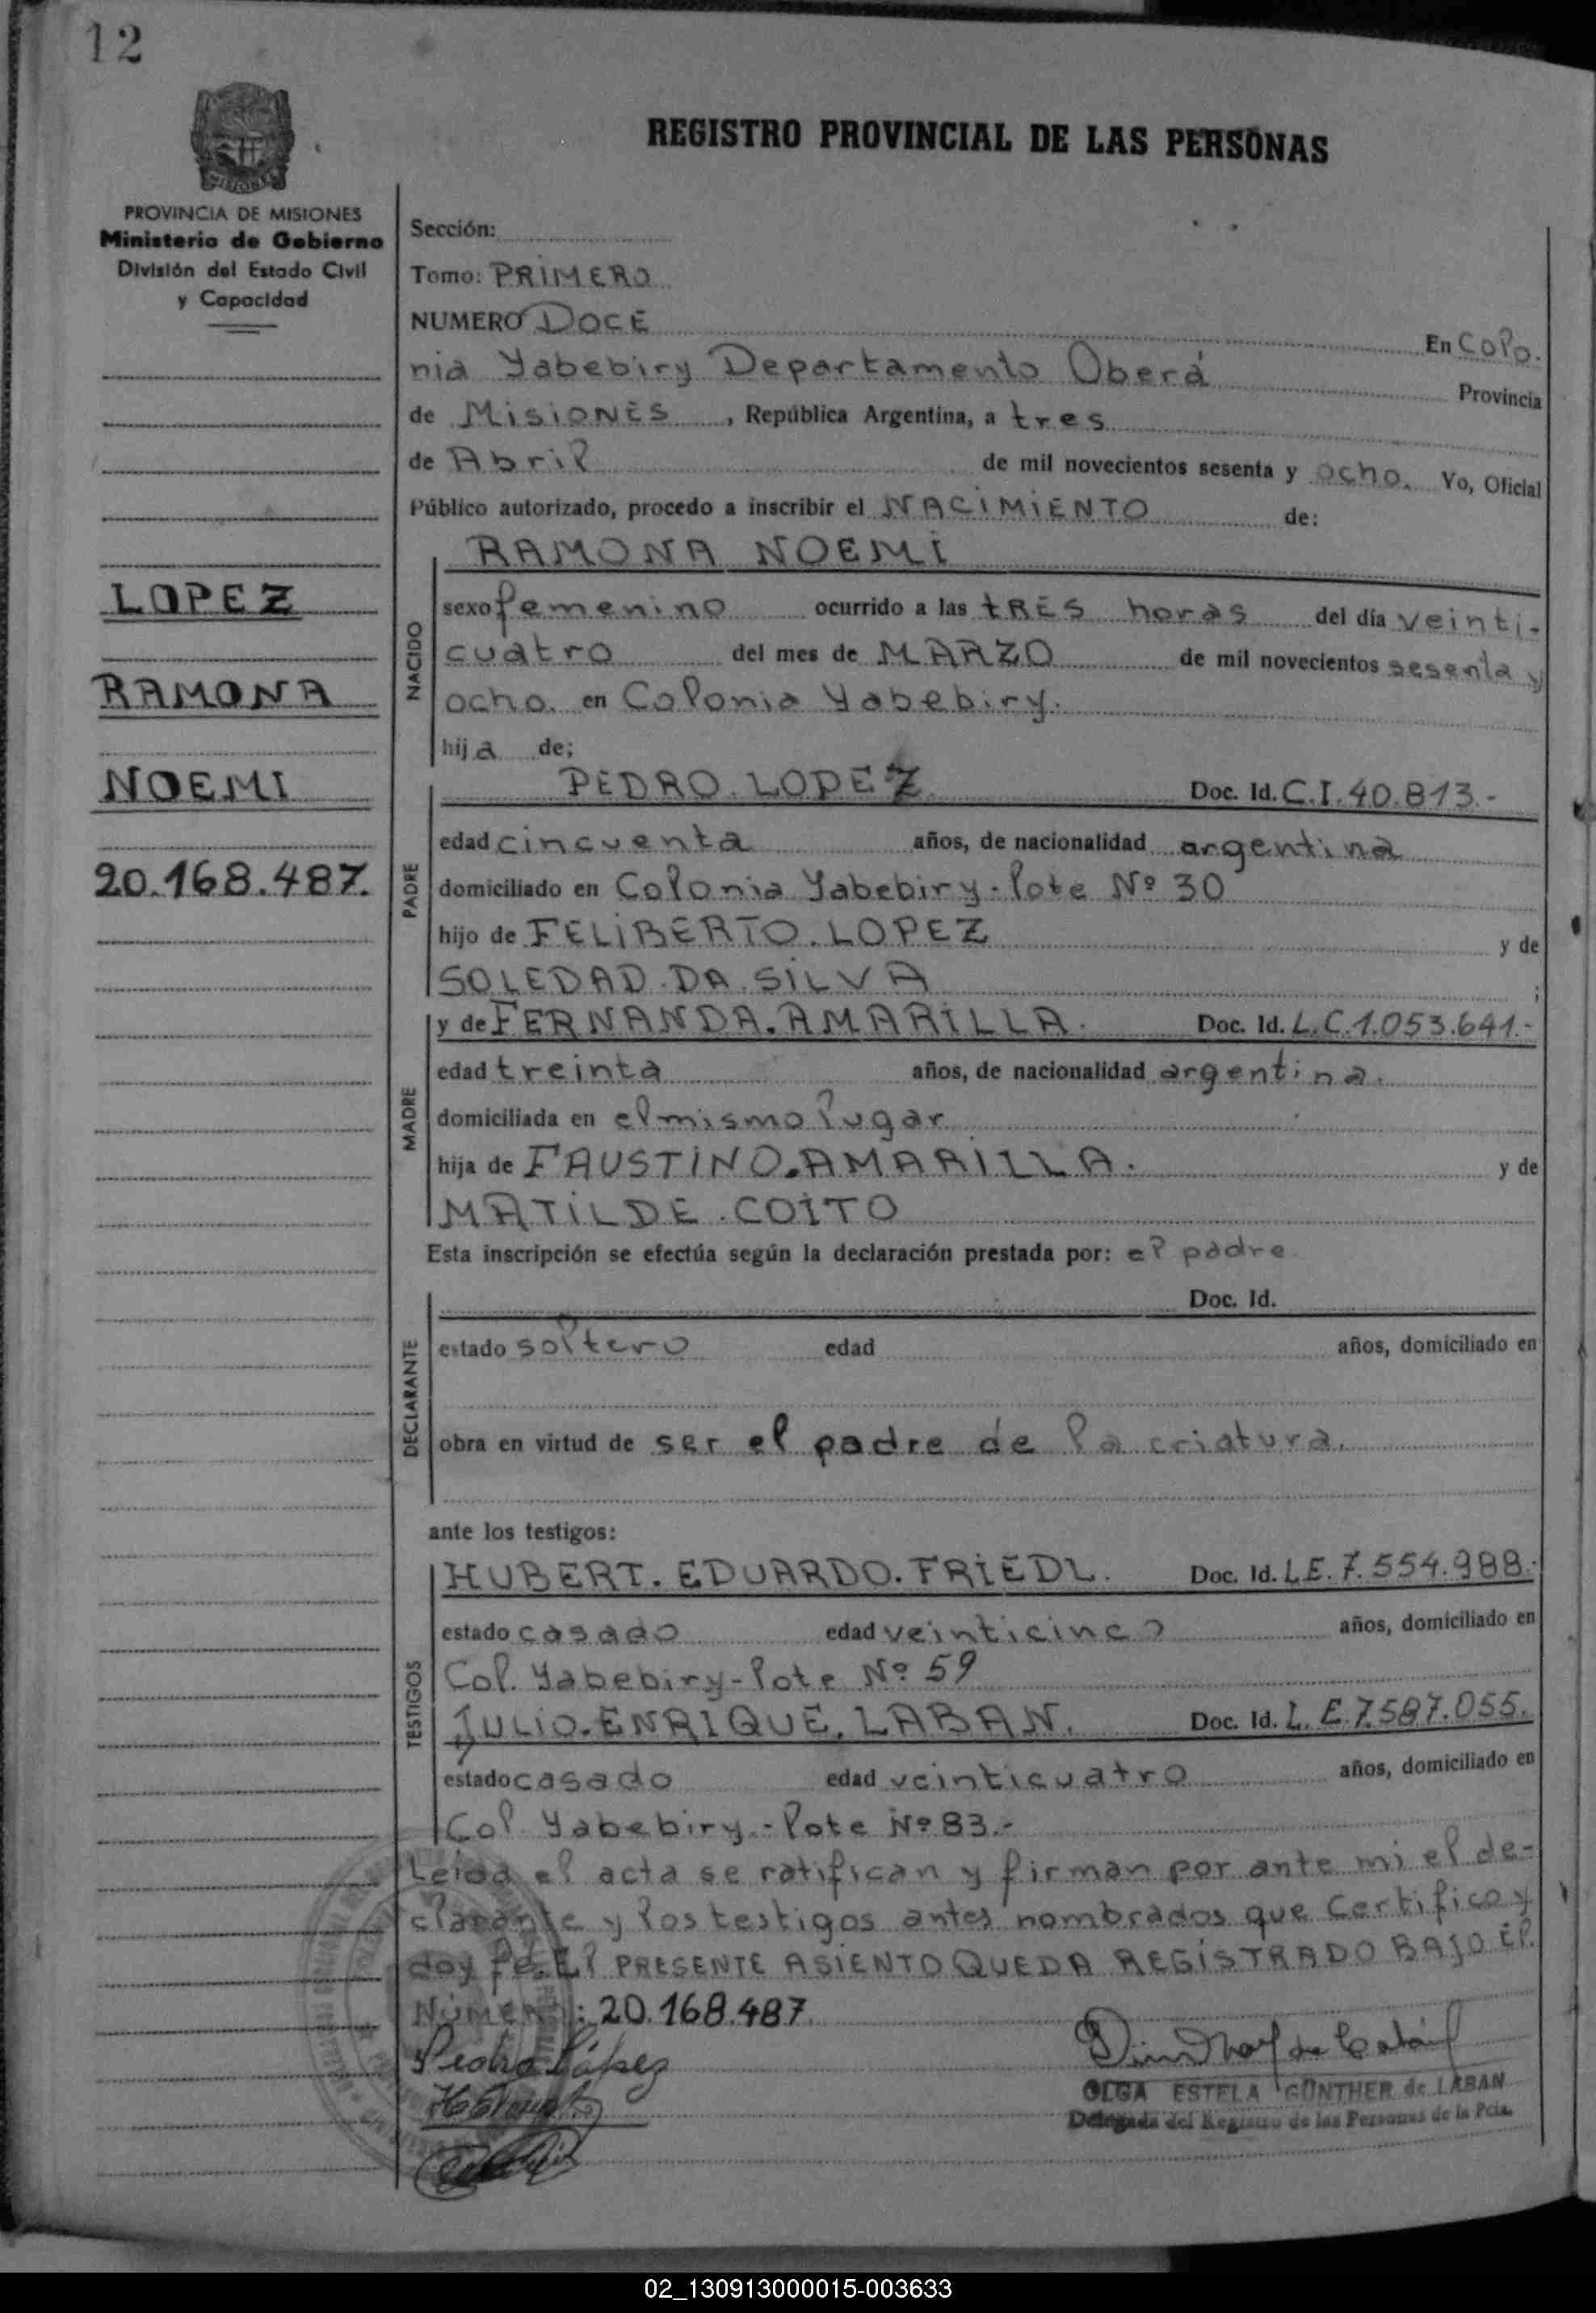 12
REGISTRO PROVINCIAL DE LAS PERSONAS
MISIONES
PROVINCIA DE MISIONES
Ministerio de Gobierno
División del Estado Civil
y Capacidad
LOPEZ
RAMONA
NOEMI
20.168.487.
Sección:
Tomo: PRIMERO
NUMERO DOCE
En Colo.
nia Yabebiry Departamento Oberá Provincia
de MISIONES, República Argentina, a tres
de Abril de mil novecientos sesenta y ocho. Yo, Oficial
Público autorizado, procedo a inscribir el NACIMIENTO de:
NACIDO
RAMONA NOEMI
sexo femenino ocurrido a las TRES horas del día veinti-
cuatro del mes de MARZO de mil novecientos sesenta y
ocho. en Colonia Yabebiry.
hija de;
PADRE
PEDRO. LOPEZ Doc. Id. C.I. 40.813.-
edad cincuenta años, de nacionalidad argentina
domiciliado en Colonia Yabebiry - lote Nº 30
hijo de FELIBERTO. LOPEZ y de
SOLEDAD. DA. SILVA ;
MADRE
y de FERNANDA. AMARILLA. Doc. Id. L.C. 1.053.641.-
edad treinta años, de nacionalidad argentina.
domiciliada en el mismo lugar
hija de FAUSTINO. AMARILLA. y de
MATILDE. COITO
Esta inscripción se efectúa según la declaración prestada por: el padre
DECLARANTE
Doc. Id.
estado soltero edad años, domiciliado en
obra en virtud de ser el padre de la criatura.
ante los testigos:
TESTIGOS
HUBERT. EDUARDO. FRIEDL. Doc. Id. L.E. 7.554.988.-
estado casado edad veinticinco años, domiciliado en
Col. Yabebiry - lote Nº 59
JULIO. ENRIQUE. LABAN. Doc. Id. L.E. 7.587.055.
estado casado edad veinticuatro años, domiciliado en
Col. Yabebiry. - lote Nº 83.-
Leida el acta se ratifican y firman por ante mi el de-
clarante y los testigos antes nombrados que Certifico y
doy fe. El PRESENTE ASIENTO QUEDA REGISTRADO BAJO El
Número: 20.168.487.
Pedro López
OLGA ESTELA GÜNTHER de LABAN
Delegada del Registro de las Personas de la Pcia.
02_130913000015-003633